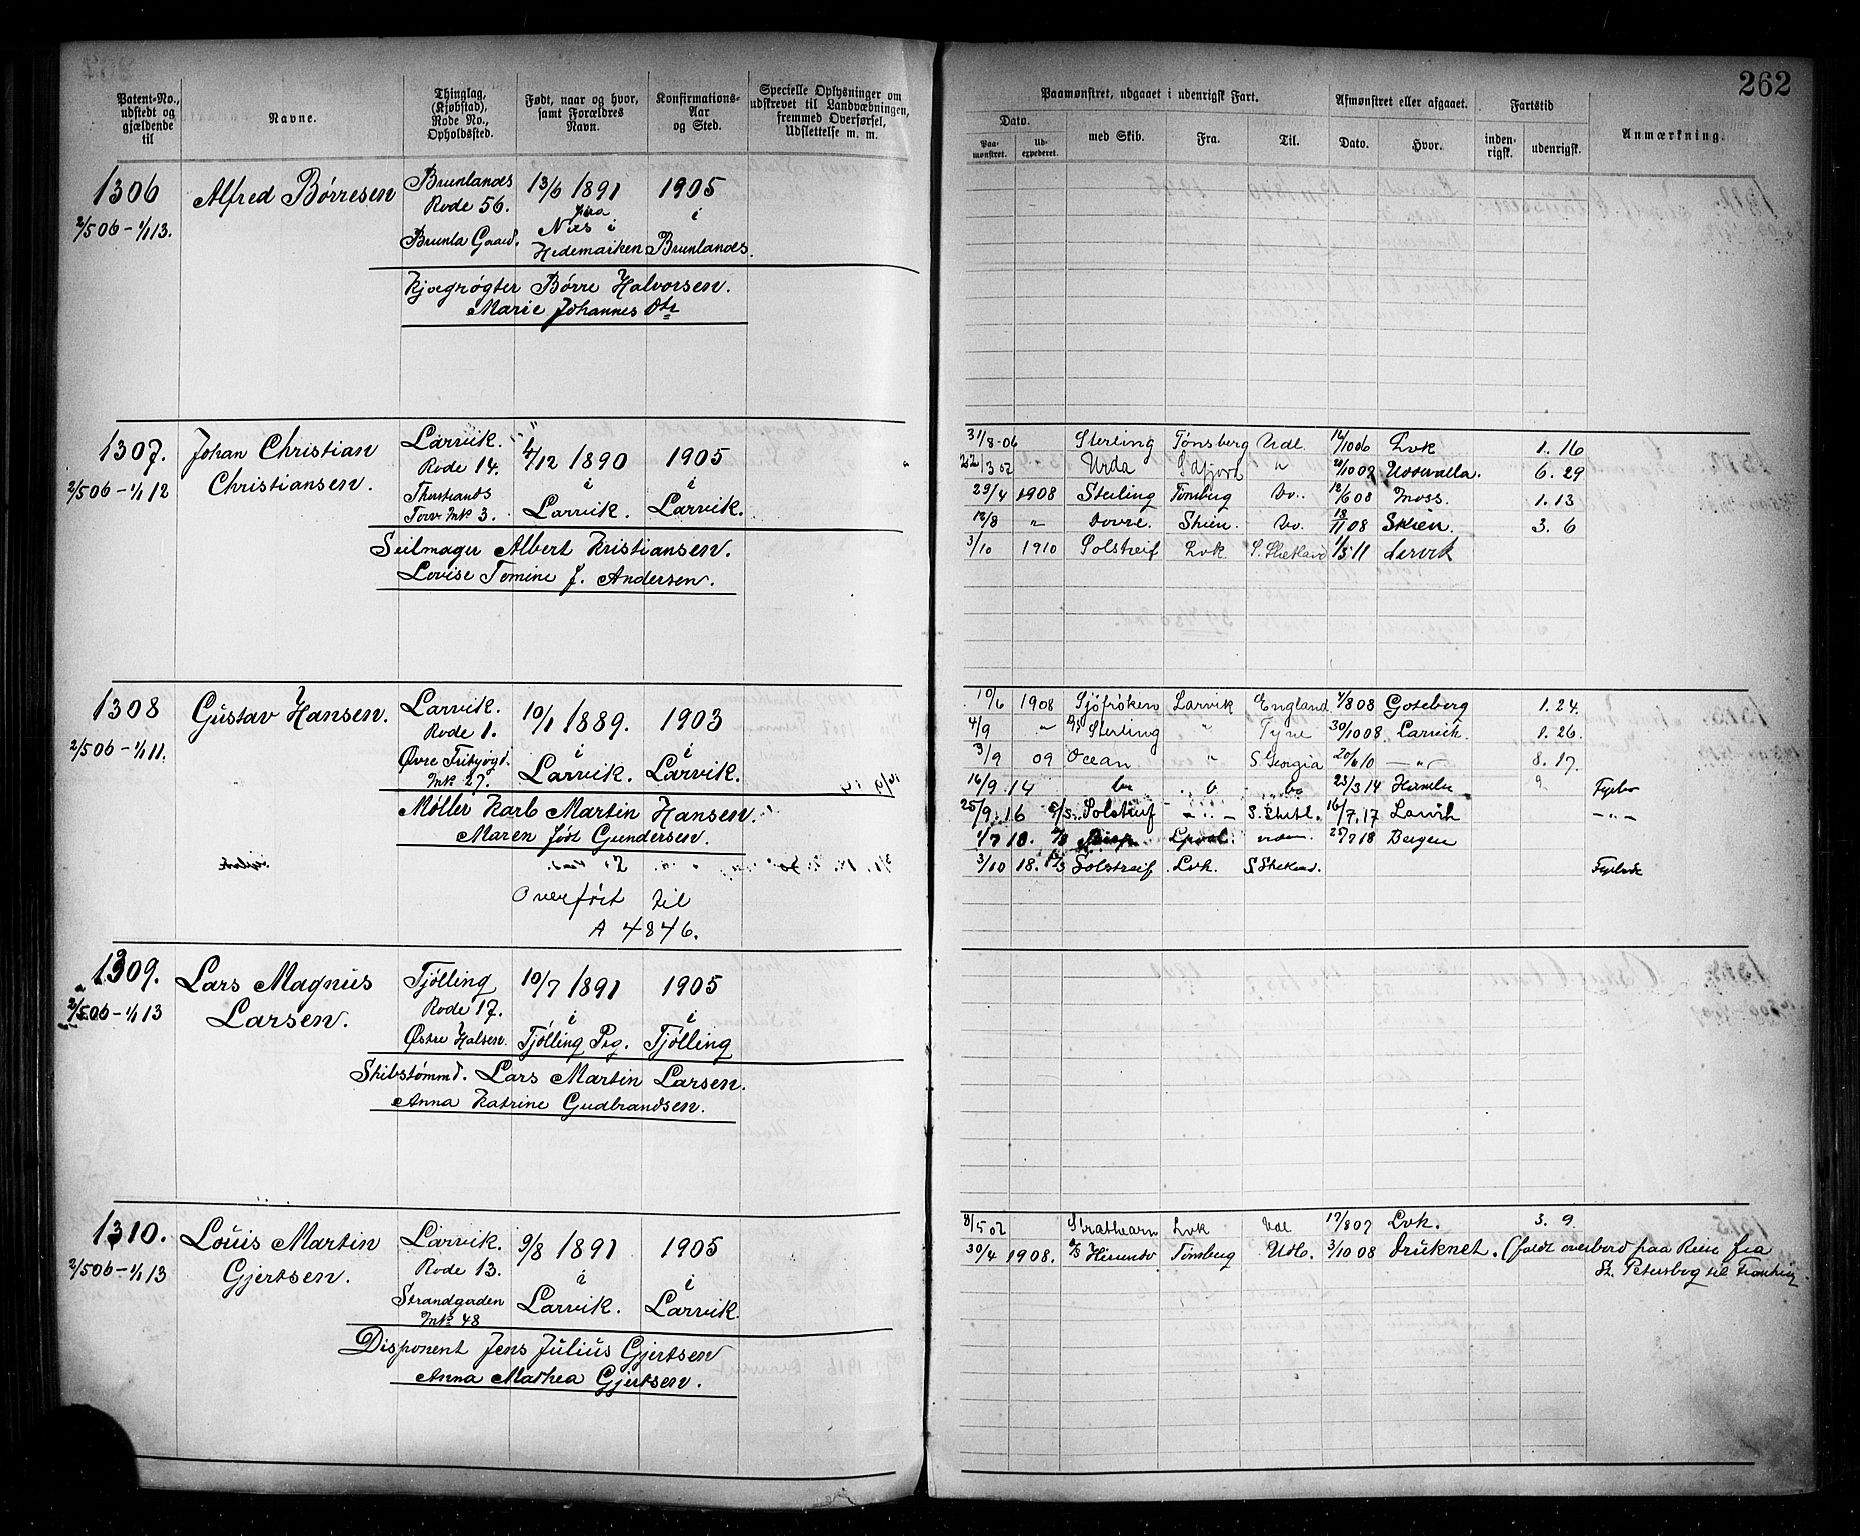 262
Patent-No., udstedt og gjældende til
Navne.
Thinglag, (Kjøbstad), Rode No., Opholdssted.
Født, naar og hvor, samt Forældres Navn.
Konfirmations-Aar og Sted.
Specielle Oplysninger om udskrevet til Landvæbningen, fremmed Overførsel, Udslettelse m. m.
Paamønstret, udgaaet i udenrigsk Fart.
Dato.
Paamønstret.
Udexpederet.
med Skib.
Fra.
Til.
Afmønstret eller afgaaet.
Dato.
Hvor.
Fartstid
indenrigsk.
udenrigsk.
Anmærkning.
1306
2/5 06 - 1/1 13.
Alfred Børresen
Brunlanæs
Rode 56.
Brunla Gaard.
13/6 1891
Næs i
Hedemarken
1905
i
Brunlanæs.
Kjøgrøgter Børre Halvorsen.
Marie Johannes Dtr
1307.
2/5 06 - 1/1 12
Johan Christian
Christiansen.
Larvik.
Rode 14.
Thorstrands
Torv Mk 3.
4/12 1890
i
Larvik.
1905
i
Larvik.
Seilmager Albert Kristiansen.
Lovise Tomine J. Andersen.
31/8-06 Sterling Tønsberg Udl. 14/10 06 Lvk 1. 16
Urda 21/10 08 Uddevalla. 6. 29
29/4 1908 Sterling Tønsberg Do. 12/6 08 Moss. 1. 13
12/8 " Dovre. Skien. Do 18/11 08 Skien. 3. 6
3/10 1910 Solstreif Lvk. S. Shetland 1/5 11 Larvik
1308
2/5 06 - 1/1 11.
Gustav Hansen.
Larvik.
Rode 1.
Øvre Fritzøgd.
Mk 27.
10/1 1889.
i
Larvik.
1903
i
Larvik.
Møller Karl Martin Hansen.
Maren født Gundersen.
Overført til
A 4846.
10/6 1908 Sjöfröken Larvik England 4/8 08 Goteberg 1. 24.
4/9 " Sterling " Tyne 30/10 08 Larvik. 1. 26.
3/9 09 Ocean " S Georgia 20/6 10 - " - 8. 17.
16/9 14 do 23/3 14
25/9. 16 Solstreif - " - S. Shetl. 16/7. 17 Larvik - " -
1/7 18. 25/7 18 Bergen
3/10 18. Solstreif Lvk. S Shetland.
1309.
2/5 06 - 1/1 13
Lars Magnus
Larsen.
Tjølling
Rode 17.
Østre Halsen.
10/7 1891
i
Tjølling Pg.
1905
i
Tjølling
Skibstømmd. Lars Martin Larsen.
Anna Katrine Gudbrandsen.
1310.
2/5 06 - 1/1 13
Louis Martin
Gjertsen.
Larvik.
Rode 13.
Strandgaden
Mk 48
9/8 1891
i
Larvik.
1905
i
Larvik.
Disponent Jens Julius Gjertsen
Anna Mathea Gjertsen.
Strathearn Lvk Udl 17/8 07 Lvk. 3. 9.
30/4 1908. Hirundo Tønsberg Udl. 3/10 08 druknet. (faldt overbord paa Reise fra
St. Petersbog til